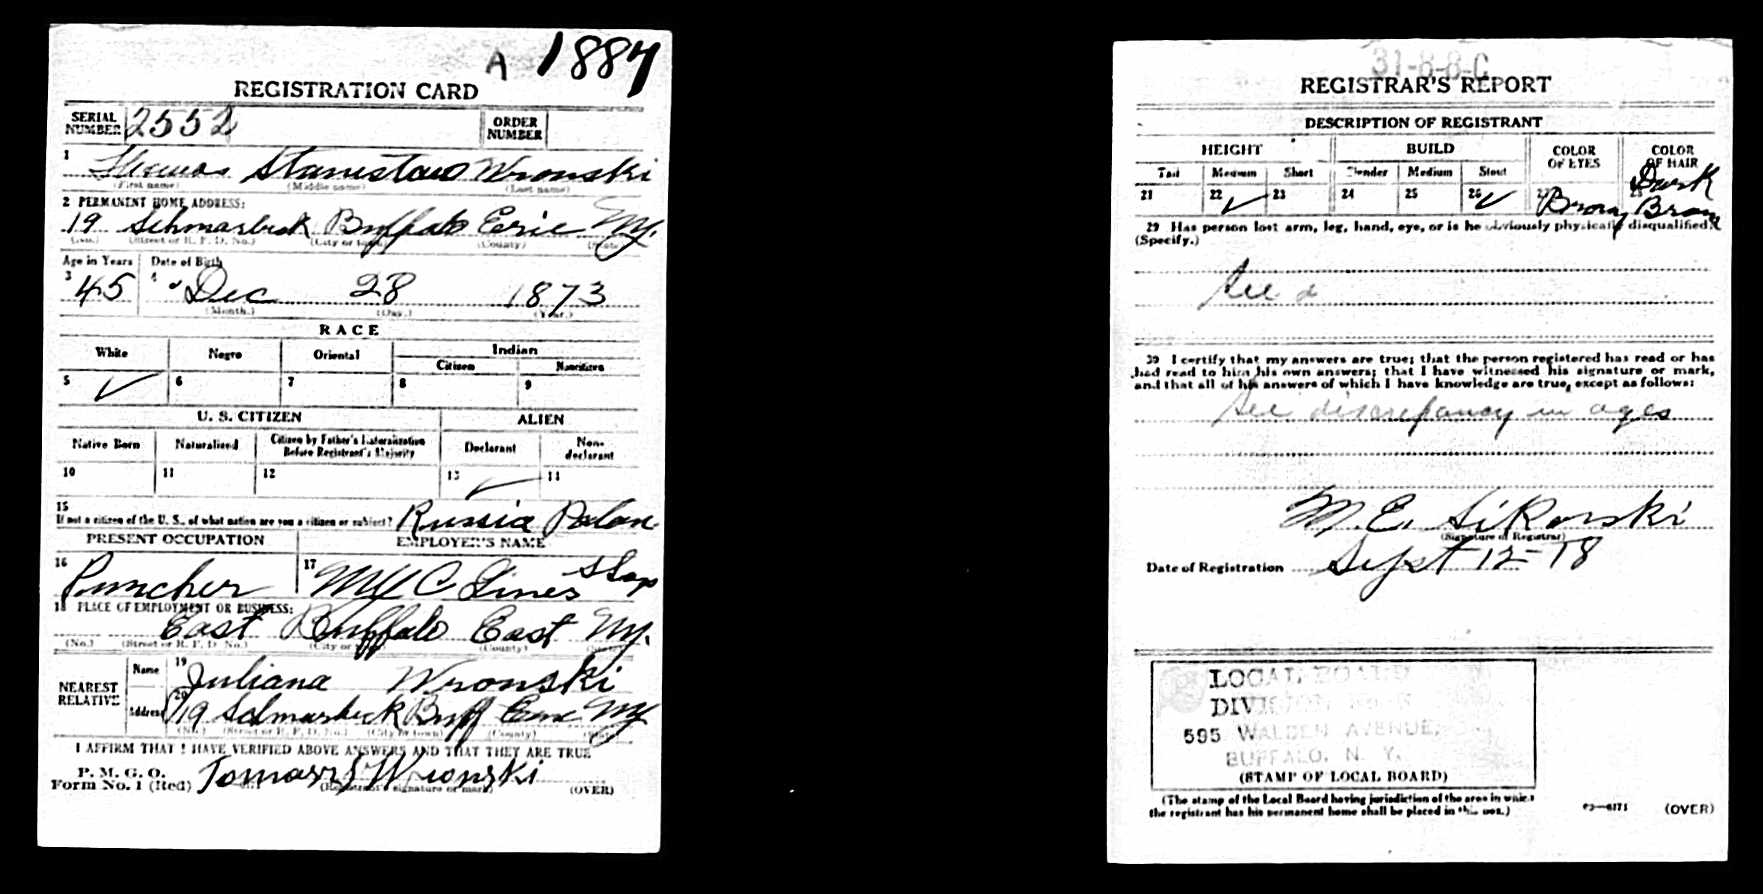 A 1887
REGISTRATION CARD
SERIAL NUMBER 2552 ORDER NUMBER
1 Thomas Stanislaus Wronski
(First name) (Middle name) (Last name)
2 PERMANENT HOME ADDRESS:
19 Schmarbeck Buffalo Erie NY.
(No.) (Street or R. F. D. No.) (City or town) (County) (State)
Age in Years Date of Birth
3 45 4 Dec 28 1873
(Month.) (Day.) (Year.)
RACE
White Negro Oriental Indian
Citizen Noncitizen
5 ✓ 6 7 8 9
U. S. CITIZEN ALIEN
Native Born Naturalized Citizen by Father's Naturalization Before Registrant's Majority Declarant Non-declarant
10 11 12 13 ✓ 14
15
If not a citizen of the U. S., of what nation are you a citizen or subject? Russia Polan
PRESENT OCCUPATION EMPLOYER'S NAME
16 Puncher 17 NYC Lines Shop
18 PLACE OF EMPLOYMENT OR BUSINESS:
East Buffalo East NY.
(No.) (Street or R. F. D. No.) (City or town) (County) (State)
NEAREST RELATIVE Name 19 Juliana Wronski
Address 20 19 Schmarbeck Buff Erie NY
(No.) (Street or R. F. D. No.) (City or town) (County) (State)
I AFFIRM THAT I HAVE VERIFIED ABOVE ANSWERS AND THAT THEY ARE TRUE
P. M. G. O.
Form No. 1 (Red) Tomasz Wronski
(Registrant's signature or mark) (OVER)
31-8-8-C
REGISTRAR'S REPORT
DESCRIPTION OF REGISTRANT
HEIGHT BUILD COLOR OF EYES COLOR OF HAIR
Tall Medium Short Slender Medium Stout Dark
21 22 ✓ 23 24 25 26 ✓ 27 Brown Brown
29 Has person lost arm, leg, hand, eye, or is he obviously physically disqualified?
(Specify.)
30 I certify that my answers are true; that the person registered has read or has
had read to him his own answers; that I have witnessed his signature or mark,
and that all of his answers of which I have knowledge are true, except as follows:
See discrepancy in ages
M. E. Sikorski
(Signature of Registrar)
Date of Registration Sept 12-18
LOCAL BOARD
DIVISION
595 WALDEN AVENUE,
BUFFALO, N. Y.
(STAMP OF LOCAL BOARD)
(The stamp of the Local Board having jurisdiction of the area in which
the registrant has his permanent home shall be placed in this box.)
03—6171 (OVER)